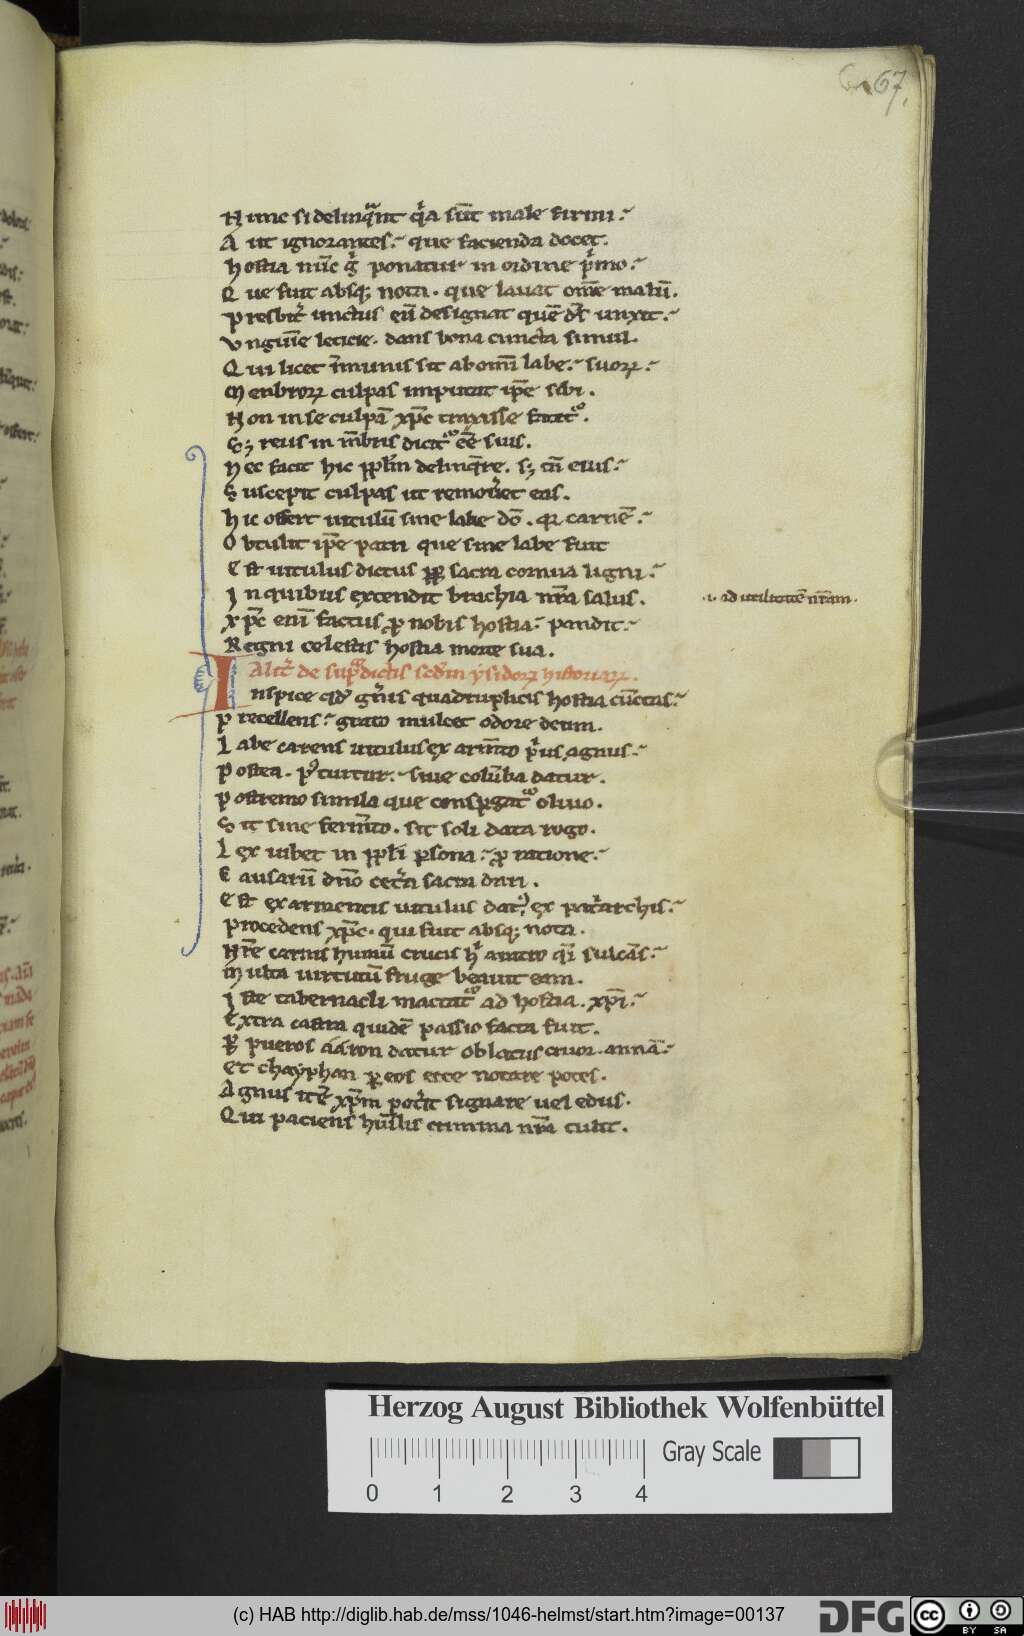 67
Hunc si delinq̄nt q̄a sūt male firmi
Aut ignorantes. que facienda docet.
Hostia nūc g̊ ponatur in ordine p̄mo
Que fuit absq; nota. que lauat om̄e malū.
Presbit̄ unctus eū designat quē ds̄ unxit
Vnguīe leticie. dans bona cuncta simul.
Qui licet īmunis sit ab omī labe. suoꝝ
Menbroꝝ culpas imputat ip̄e sibi.
Non in se culpā xp̄c traxisse fatet᷑.
Sꝫ reus in mēbris dicit᷑ cē̄ suis.
Nec facit hic ppl̄m delinq̄re. sꝫ tn̄ eius
Suscepit culpas ut remoūet eas.
Hic offert uitulū sine labe dō. qꝛ carnē
Obtulit ip̄e patri que sine labe fuit
Est uitulus dictus ꝓpꝑ sacra cornua ligni
In quibus extendit brachia nr̄a salus.
.i. ad utilitatē nr̄am.
Xp̄c enī factus ꝓ nobis hostia pandit
Regni celestis hostia mente sua.
Alit̄ de sup̄dictis scd̄m ysidoꝝ historiaꝝ.
Inspice qd̄ gn̄is quadruplicis hostia cūctas
Precellens grato mulcet odore deum.
Labe carens uitulus ex armn̄to p̄us, agnus
Postea. p᷒ turtur. siue colūba datur.
Postremo simila que consꝑgat᷑ oliuo.
Sit sine ferm̄to. sit soli data rogo.
Lex iubet in ppl̄i ꝑsona ꝓ ratione
Causarū dn̄o cet̄a sacra dari.
Est ex armentis uitulus dat᷒, ex pat̄archis
Procedens xp̄c. qui fuit absq; nota.
Nr̄e carnis humū crucis h̊ aratro q̄i sulcās
Multa uirtutū fruge beauit eam.
Iste tabernacli mactat᷑ ad hostia. xp̄i
Extra castra quidē passio facta fuit.
Pꝑ pueros aaron datur oblatus cruor. annā
Et chayphan ꝑ eos ecce notare potes.
Agnus itē xp̄m pot̄it signare uel edus.
Qui paciens hūilis crimina nr̄a tulit.
Herzog August Bibliothek Wolfenbüttel
Gray Scale
0 1 2 3 4
(c) HAB http://diglib.hab.de/mss/1046-helmst/start.htm?image=00137
DFG
cc BY SA